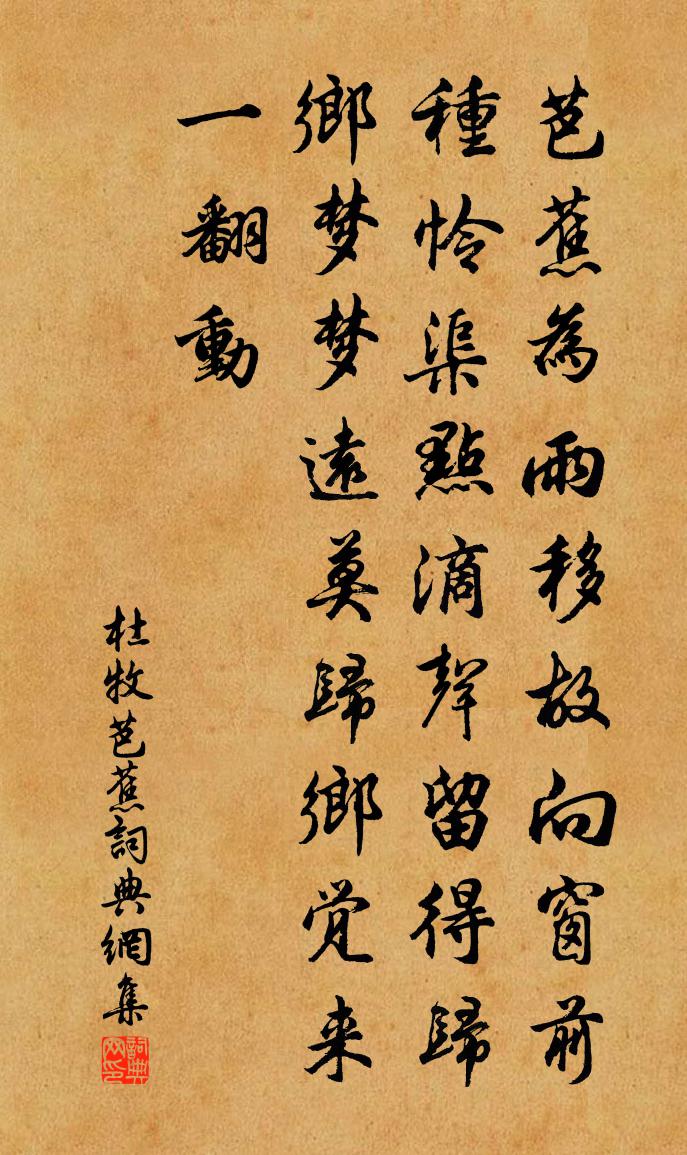 芭蕉為雨移故向窗前
種怜渠點滴聲留得歸
鄉梦梦遠莫歸鄉觉来
一翻動
杜牧芭蕉詞典網集
詞典网印